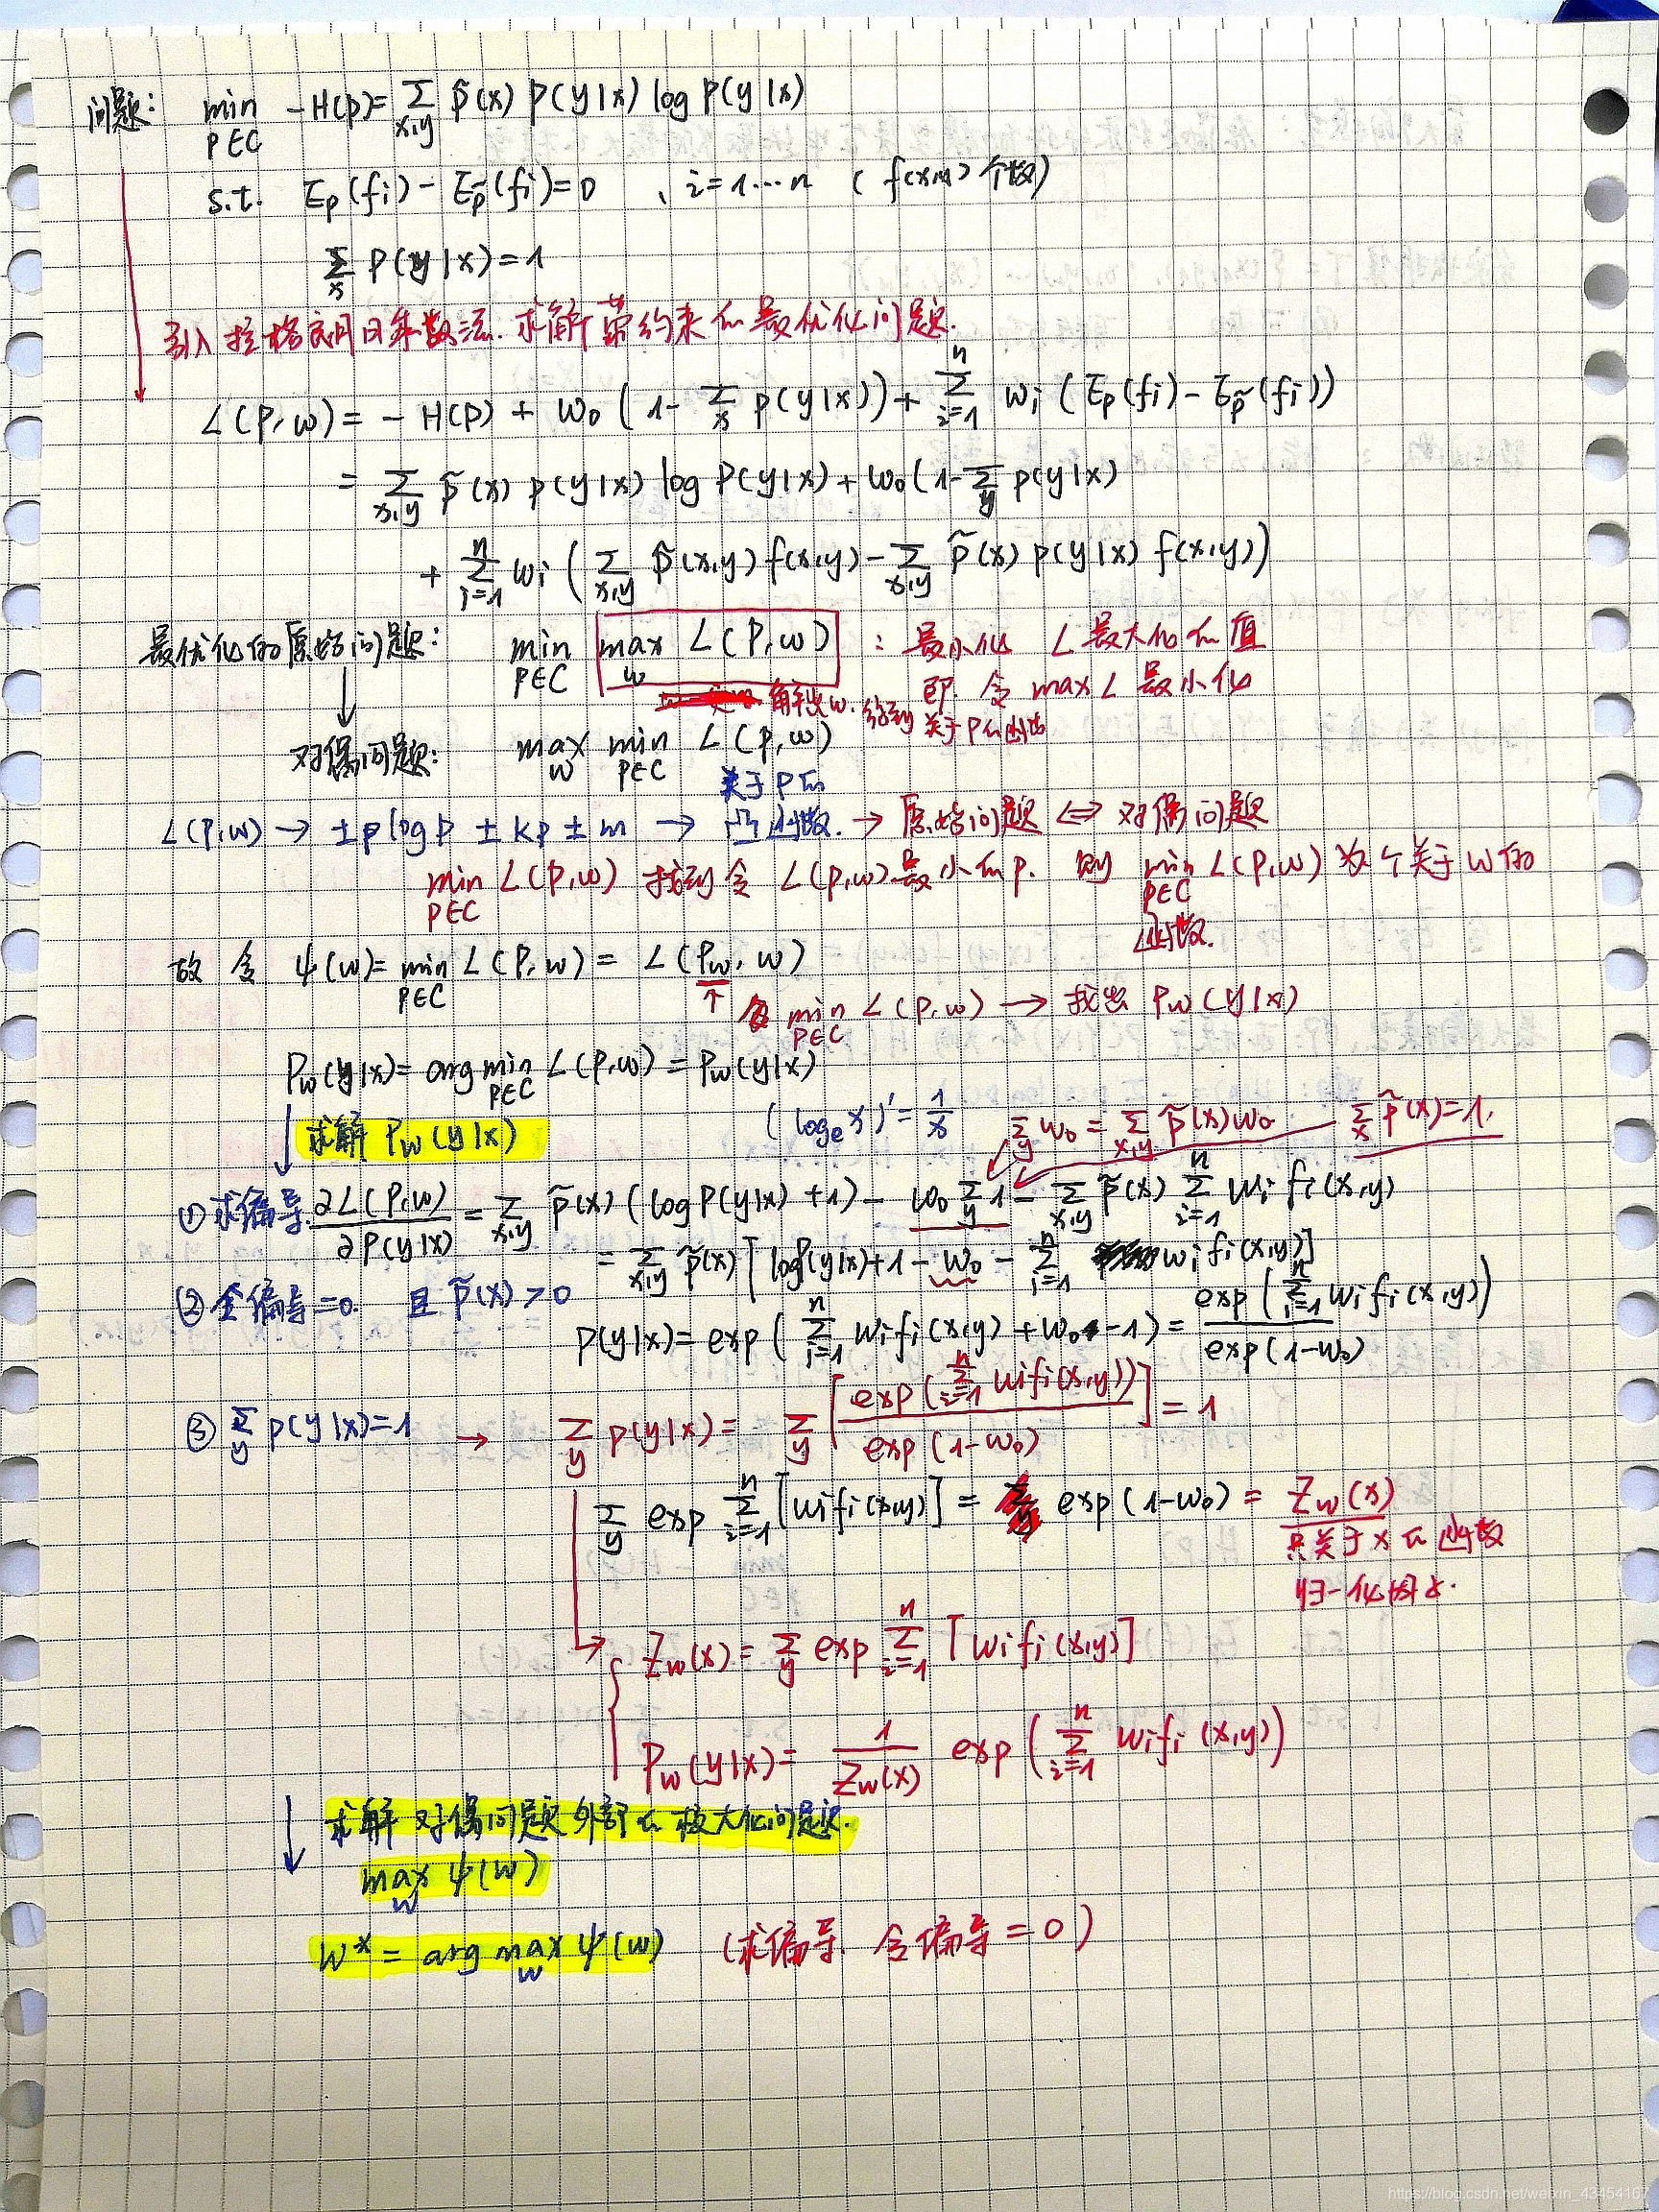 问题: min -H(p)= Σ p̃(x) p(y|x) log p(y|x)
p∈C x,y
s.t. Ep(fi) - Ep̃(fi)=0 、i=1…n ( f(x,y) 个数)
Σ p(y|x)=1
x
引入拉格朗日乘数法. 求解带约束的最优化问题.
L(p,w) = - H(p) + w0 (1- Σx p(y|x)) + Σ(i=1→n) wi (Ep(fi) - Ep̃(fi))
= Σx,y p̃(x) p(y|x) log p(y|x) + w0(1-Σy p(y|x)
+ Σ(i=1→n) wi ( Σx,y p̃(x,y) f(x,y) - Σx,y p̃(x) p(y|x) f(x,y))
最优化的原始问题: min p∈C max w L(p,w) : 最小化 L 最大化的值
即. 令 max L 最小化
解决w. 得到关于p的函数
对偶问题: max w min p∈C L(p,w)
关于p的
L(p,w) → ±p log p ± kp ± m → 凸函数. → 原始问题 ⇔ 对偶问题
min p∈C L(p,w) 找到令 L(p,w) 最小的p. 则 min p∈C L(p,w) 为个关于w的
函数.
故 令 ψ(w)= min p∈C L(p,w) = L(pw, w)
↑ 令 min p∈C L(p,w) → 找出 pw(y|x)
pw(y|x)= arg min p∈C L(p,w) = pw(y|x)
求解 pw(y|x) (loge x)′ = 1/x Σy w0 = Σx,y p̃(x)w0 Σx p̃(x)=1.
①求偏导. ∂L(p,w)/∂p(y|x) = Σx,y p̃(x) (log p(y|x) + 1) - w0 Σy 1 - Σx,y p̃(x) Σ(i=1→n) wi fi(x,y)
= Σx,y p̃(x) [ log p(y|x)+1 - w0 - Σ(i=1→n) wi fi(x,y)]
②令偏导=0. 且 p̃(x) > 0
p(y|x) = exp ( Σ(i=1→n) wi fi(x,y) + w0 -1) = exp ( Σ(i=1→n) wi fi(x,y)) / exp(1-w0)
③ Σy p(y|x)=1 → Σy p(y|x)= Σy [ exp( Σ(i=1→n) wi fi(x,y)) / exp(1-w0) ] = 1
Σy exp Σ(i=1→n) [wi fi(x,y)] = exp(1-w0) = Zw(x)
只关于x的函数
归一化因子.
Zw(x) = Σy exp Σ(i=1→n) [wi fi(x,y)]
Pw(y|x)= 1/Zw(x) exp ( Σ(i=1→n) wi fi(x,y))
求解 对偶问题外部的极大化问题.
max w ψ(w)
w* = arg max w ψ(w) (求偏导. 令偏导=0)
https://blog.csdn.net/weixin_43454167